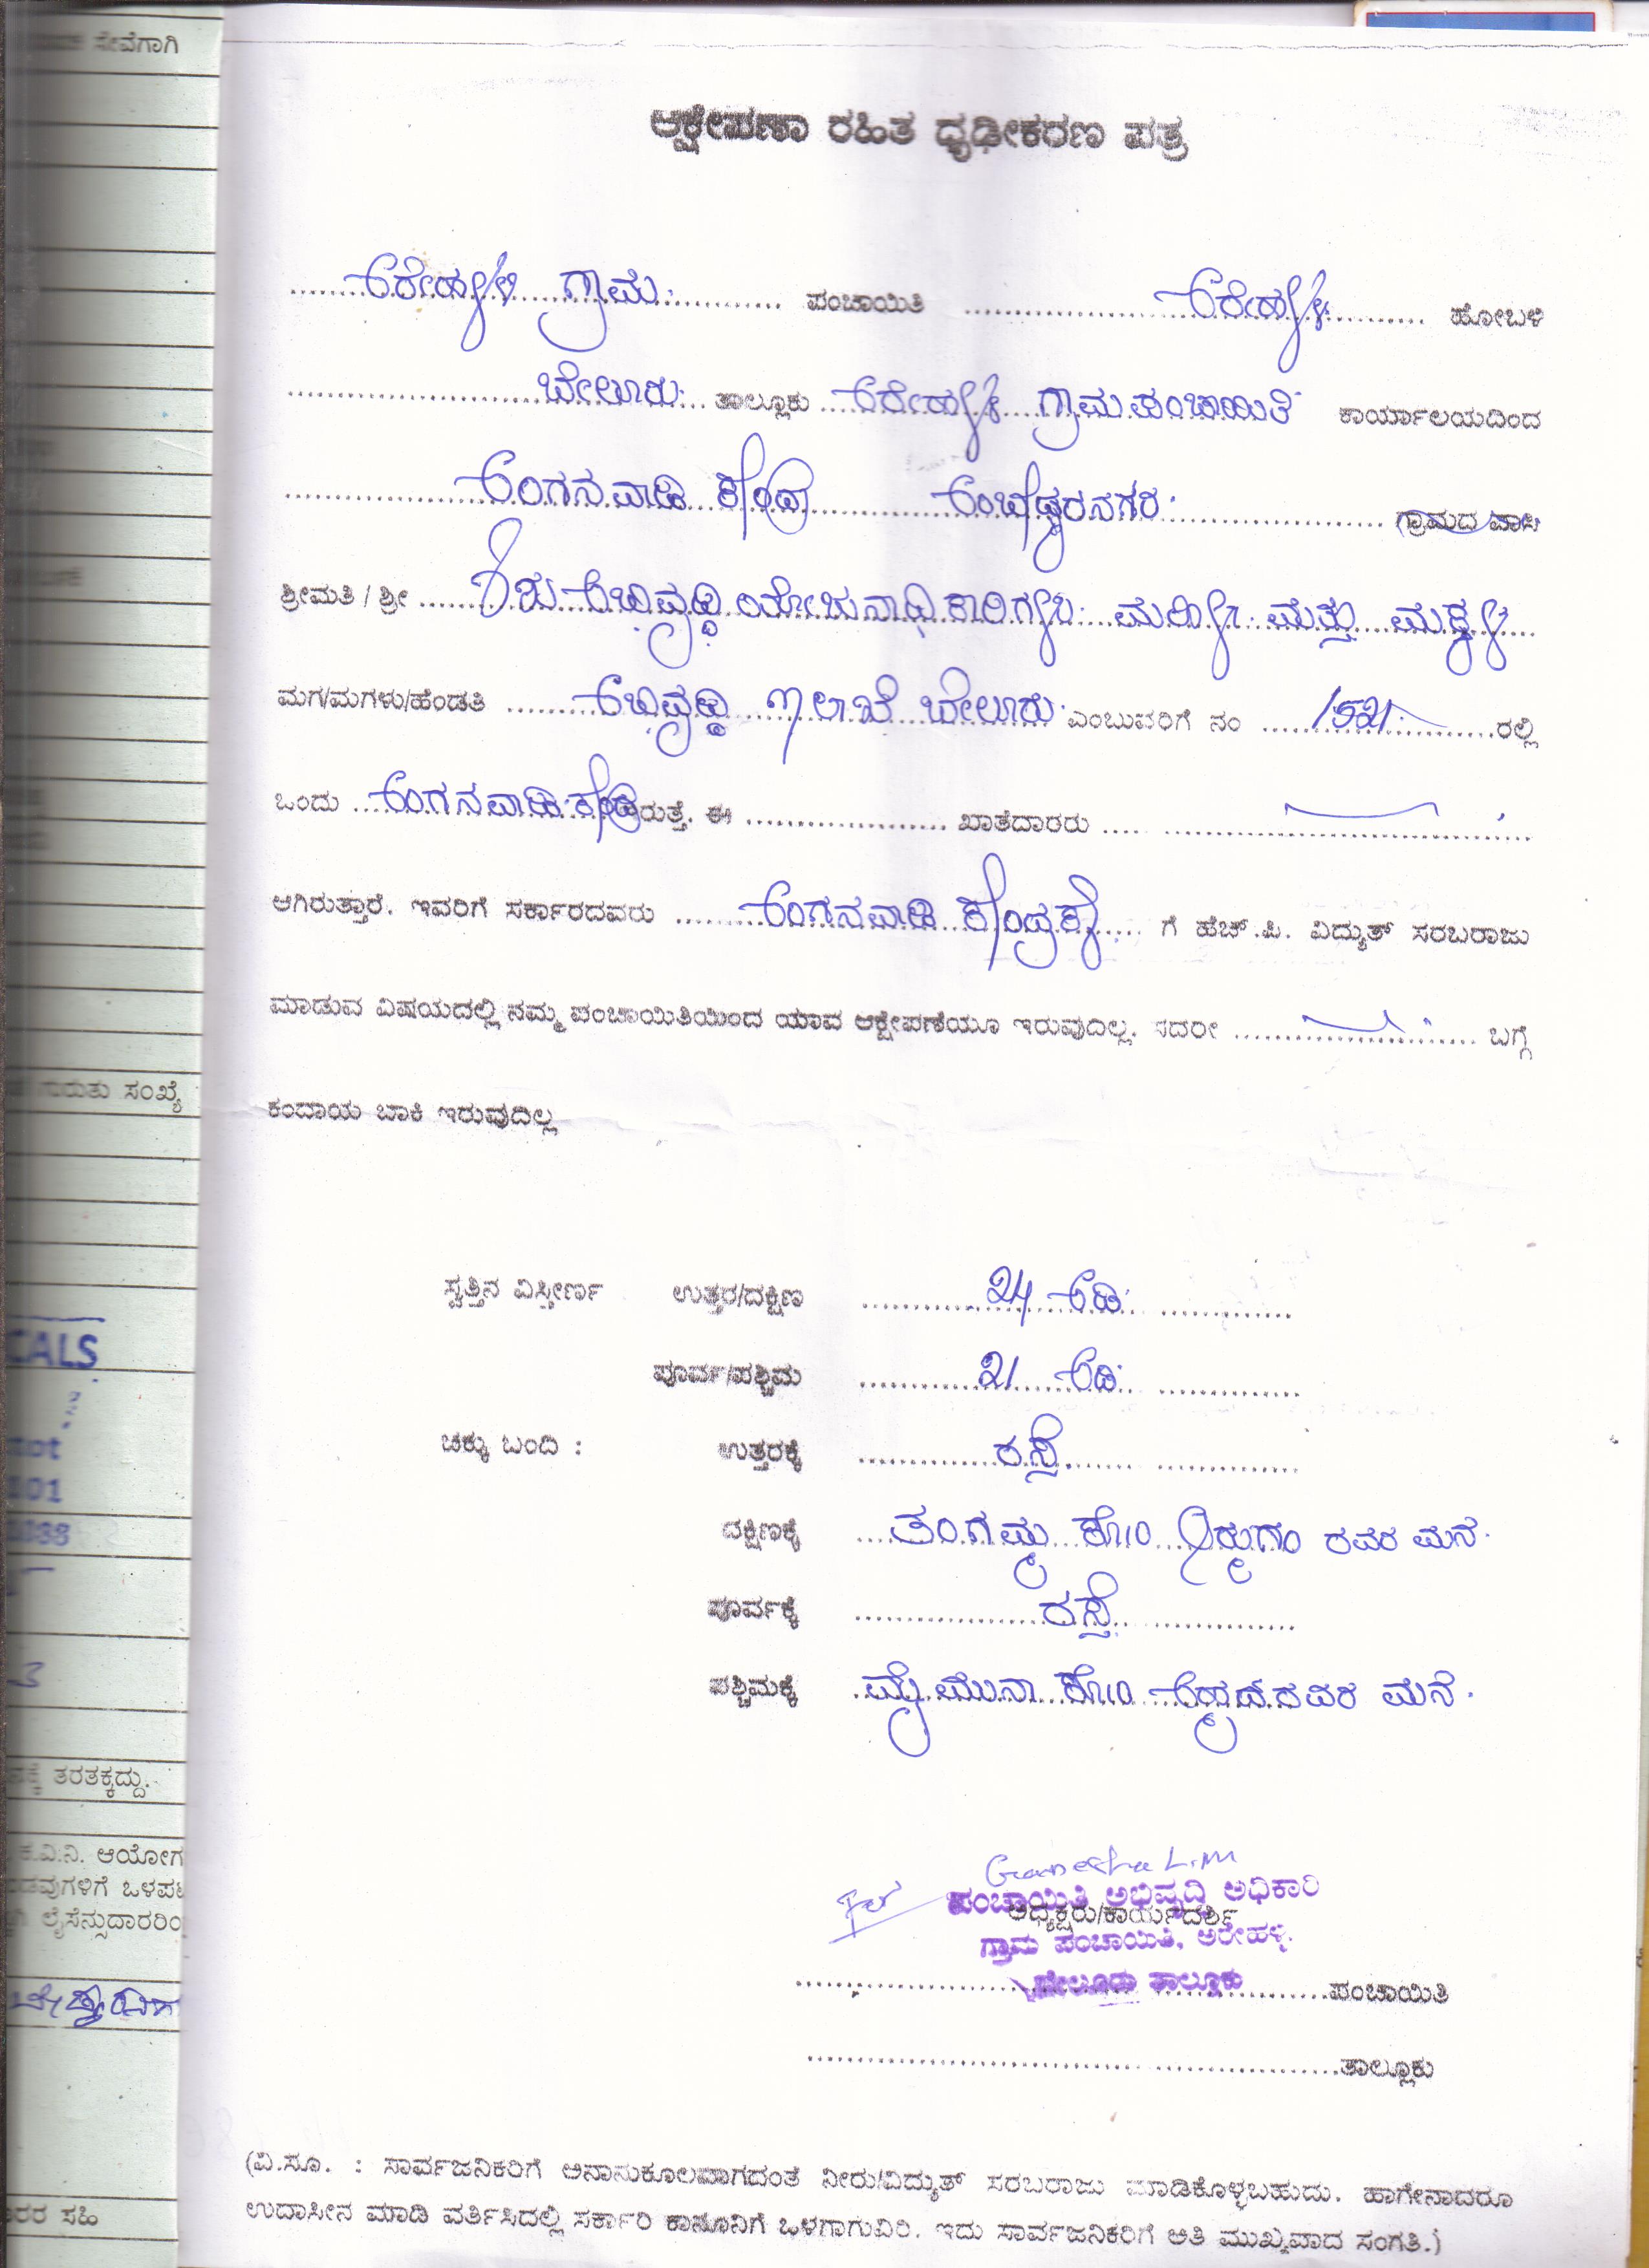 ಸೇವೆಗಾಗಿ
ಆಕ್ಷೇಪಣಾ ರಹಿತ ಧೃಢೀಕರಣ ಪತ್ರ
ಅರೇಹಳ್ಳಿ ಗ್ರಾಮ ಪಂಚಾಯಿತಿ ಅರೇಹಳ್ಳಿ ಹೋಬಳಿ
ಬೇಲೂರು ತಾಲ್ಲೂಕು ಅರೇಹಳ್ಳಿ ಗ್ರಾಮ ಪಂಚಾಯಿತಿ ಕಾರ್ಯಾಲಯದಿಂದ
ಅಂಗನವಾಡಿ ಕೇಂದ್ರ ಅಂಬೇಡ್ಕರನಗರ ಗ್ರಾಮದ ವಾಸಿ
ಶ್ರೀಮತಿ / ಶ್ರೀ ಶಿಶು ಅಭಿವೃದ್ಧಿ ಯೋಜನಾಧಿಕಾರಿಗಳು ಮಹಿಳಾ ಮತ್ತು ಮಕ್ಕಳ
ಮಗ/ಮಗಳು/ಹೆಂಡತಿ ಅಭಿವೃದ್ಧಿ ಇಲಾಖೆ ಬೇಲೂರು ಎಂಬುವರಿಗೆ ನಂ 1521 ರಲ್ಲಿ
ಒಂದು ಅಂಗನವಾಡಿ ಕೇಂದ್ರ ಇರುತ್ತೆ. ಈ ಖಾತೆದಾರರು
ಆಗಿರುತ್ತಾರೆ. ಇವರಿಗೆ ಸರ್ಕಾರದವರು ಅಂಗನವಾಡಿ ಕೇಂದ್ರಕ್ಕೆ ಗೆ ಹೆಚ್.ಪಿ. ವಿದ್ಯುತ್ ಸರಬರಾಜು
ಮಾಡುವ ವಿಷಯದಲ್ಲಿ ನಮ್ಮ ಪಂಚಾಯಿತಿಯಿಂದ ಯಾವ ಆಕ್ಷೇಪಣೆಯೂ ಇರುವುದಿಲ್ಲ. ಸದರೀ ಬಗ್ಗೆ
ಗುರುತು ಸಂಖ್ಯೆ
ಕಂದಾಯ ಬಾಕಿ ಇರುವುದಿಲ್ಲ
ಸ್ವತ್ತಿನ ವಿಸ್ತೀರ್ಣ ಉತ್ತರ/ದಕ್ಷಿಣ 24 ಅಡಿ
CALS
ಪೂರ್ವ/ಪಶ್ಚಿಮ 21 ಅಡಿ
ಚಕ್ಕು ಬಂದಿ : ಉತ್ತರಕ್ಕೆ ರಸ್ತೆ
ದಕ್ಷಿಣಕ್ಕೆ ತಂಗಮ್ಮ ಕೋಂ ಆರ್ಮುಗಂ ರವರ ಮನೆ.
ಪೂರ್ವಕ್ಕೆ ರಸ್ತೆ
ಪಶ್ಚಿಮಕ್ಕೆ ಮೈಮುನಾ ಕೋಂ ಅಹ್ಮದ್ ರವರ ಮನೆ.
ತರತಕ್ಕದ್ದು.
ಕ.ವಿ.ನಿ. ಆಯೋಗ
ಒಳಪಟ
ಲೈಸೆನ್ಸುದಾರರಿಂ
Ganesha L.M
For ಪಂಚಾಯಿತಿ ಅಭಿವೃದ್ಧಿ ಅಧಿಕಾರಿ
ಅಧ್ಯಕ್ಷರು/ಕಾರ್ಯದರ್ಶಿ
ಗ್ರಾಮ ಪಂಚಾಯಿತಿ, ಅರೇಹಳ್ಳಿ.
ಬೇಲೂರು ತಾಲ್ಲೂಕು ಪಂಚಾಯಿತಿ
ತಾಲ್ಲೂಕು
(ವಿ.ಸೂ. : ಸಾರ್ವಜನಿಕರಿಗೆ ಅನಾನುಕೂಲವಾಗದಂತೆ ನೀರು/ವಿದ್ಯುತ್ ಸರಬರಾಜು ಮಾಡಿಕೊಳ್ಳಬಹುದು. ಹಾಗೇನಾದರೂ
ಉದಾಸೀನ ಮಾಡಿ ವರ್ತಿಸಿದಲ್ಲಿ ಸರ್ಕಾರಿ ಕಾನೂನಿಗೆ ಒಳಗಾಗುವಿರಿ. ಇದು ಸಾರ್ವಜನಿಕರಿಗೆ ಅತಿ ಮುಖ್ಯವಾದ ಸಂಗತಿ.)
ಸಹಿ